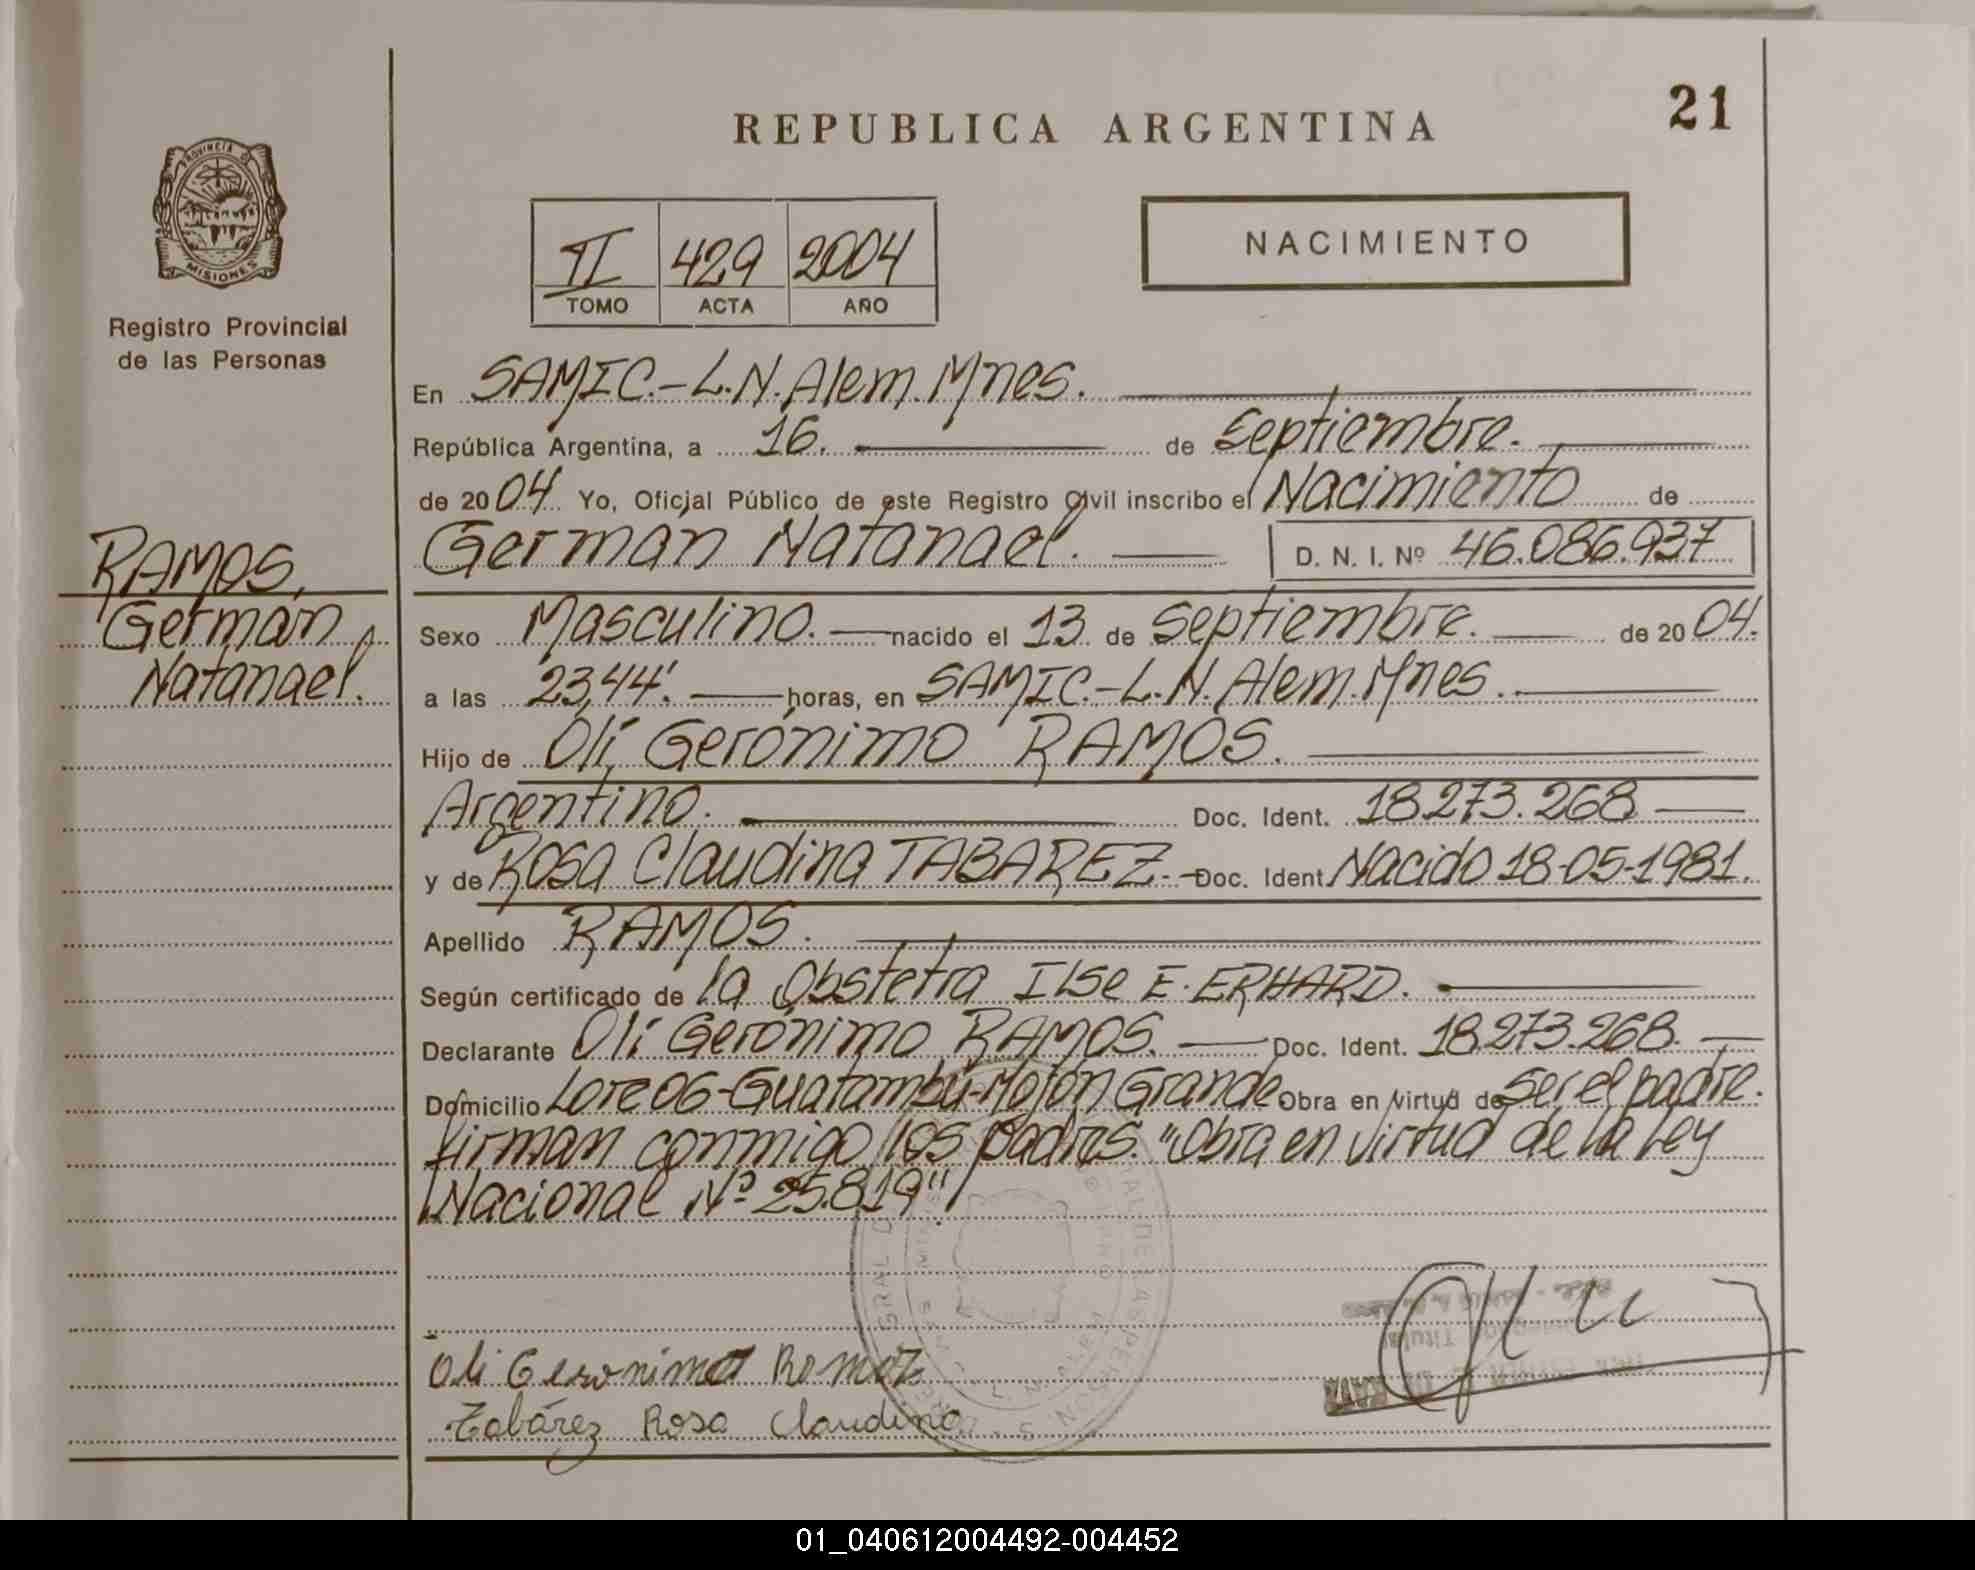 REPUBLICA ARGENTINA
21
PROVINCIA DE
MISIONES
Registro Provincial
de las Personas
II 429 2004
TOMO ACTA AÑO
NACIMIENTO
En SAMIC.-L.N.Alem.Mnes.
República Argentina, a 16. de Septiembre.
de 2004. Yo, Oficial Público de este Registro Civil inscribo el Nacimiento de
Germán Natanael. D. N. I. Nº 46.086.937
RAMOS,
Germán
Natanael.
Sexo Masculino. nacido el 13 de Septiembre. de 2004.
a las 23,44'. horas, en SAMIC.-L.N.Alem.Mnes.
Hijo de Olí Gerónimo RAMOS.
Argentino. Doc. Ident. 18.273.268
y de Rosa Claudina TABAREZ.- Doc. Ident. Nacido 18-05-1981.
Apellido RAMOS.
Según certificado de la Obstetra Ilse E. ERHARD.
Declarante Olí Gerónimo RAMOS. Doc. Ident. 18.273.268.
Domicilio Lote 06-Guatambú-Mojón Grande Obra en virtud de Ser el padre.
firman conmigo los padres. "Obra en virtud de la Ley
Nacional Nº 25.819".
Oli Geronimo Ramoz
Tabárez Rosa Claudina
01_040612004492-004452